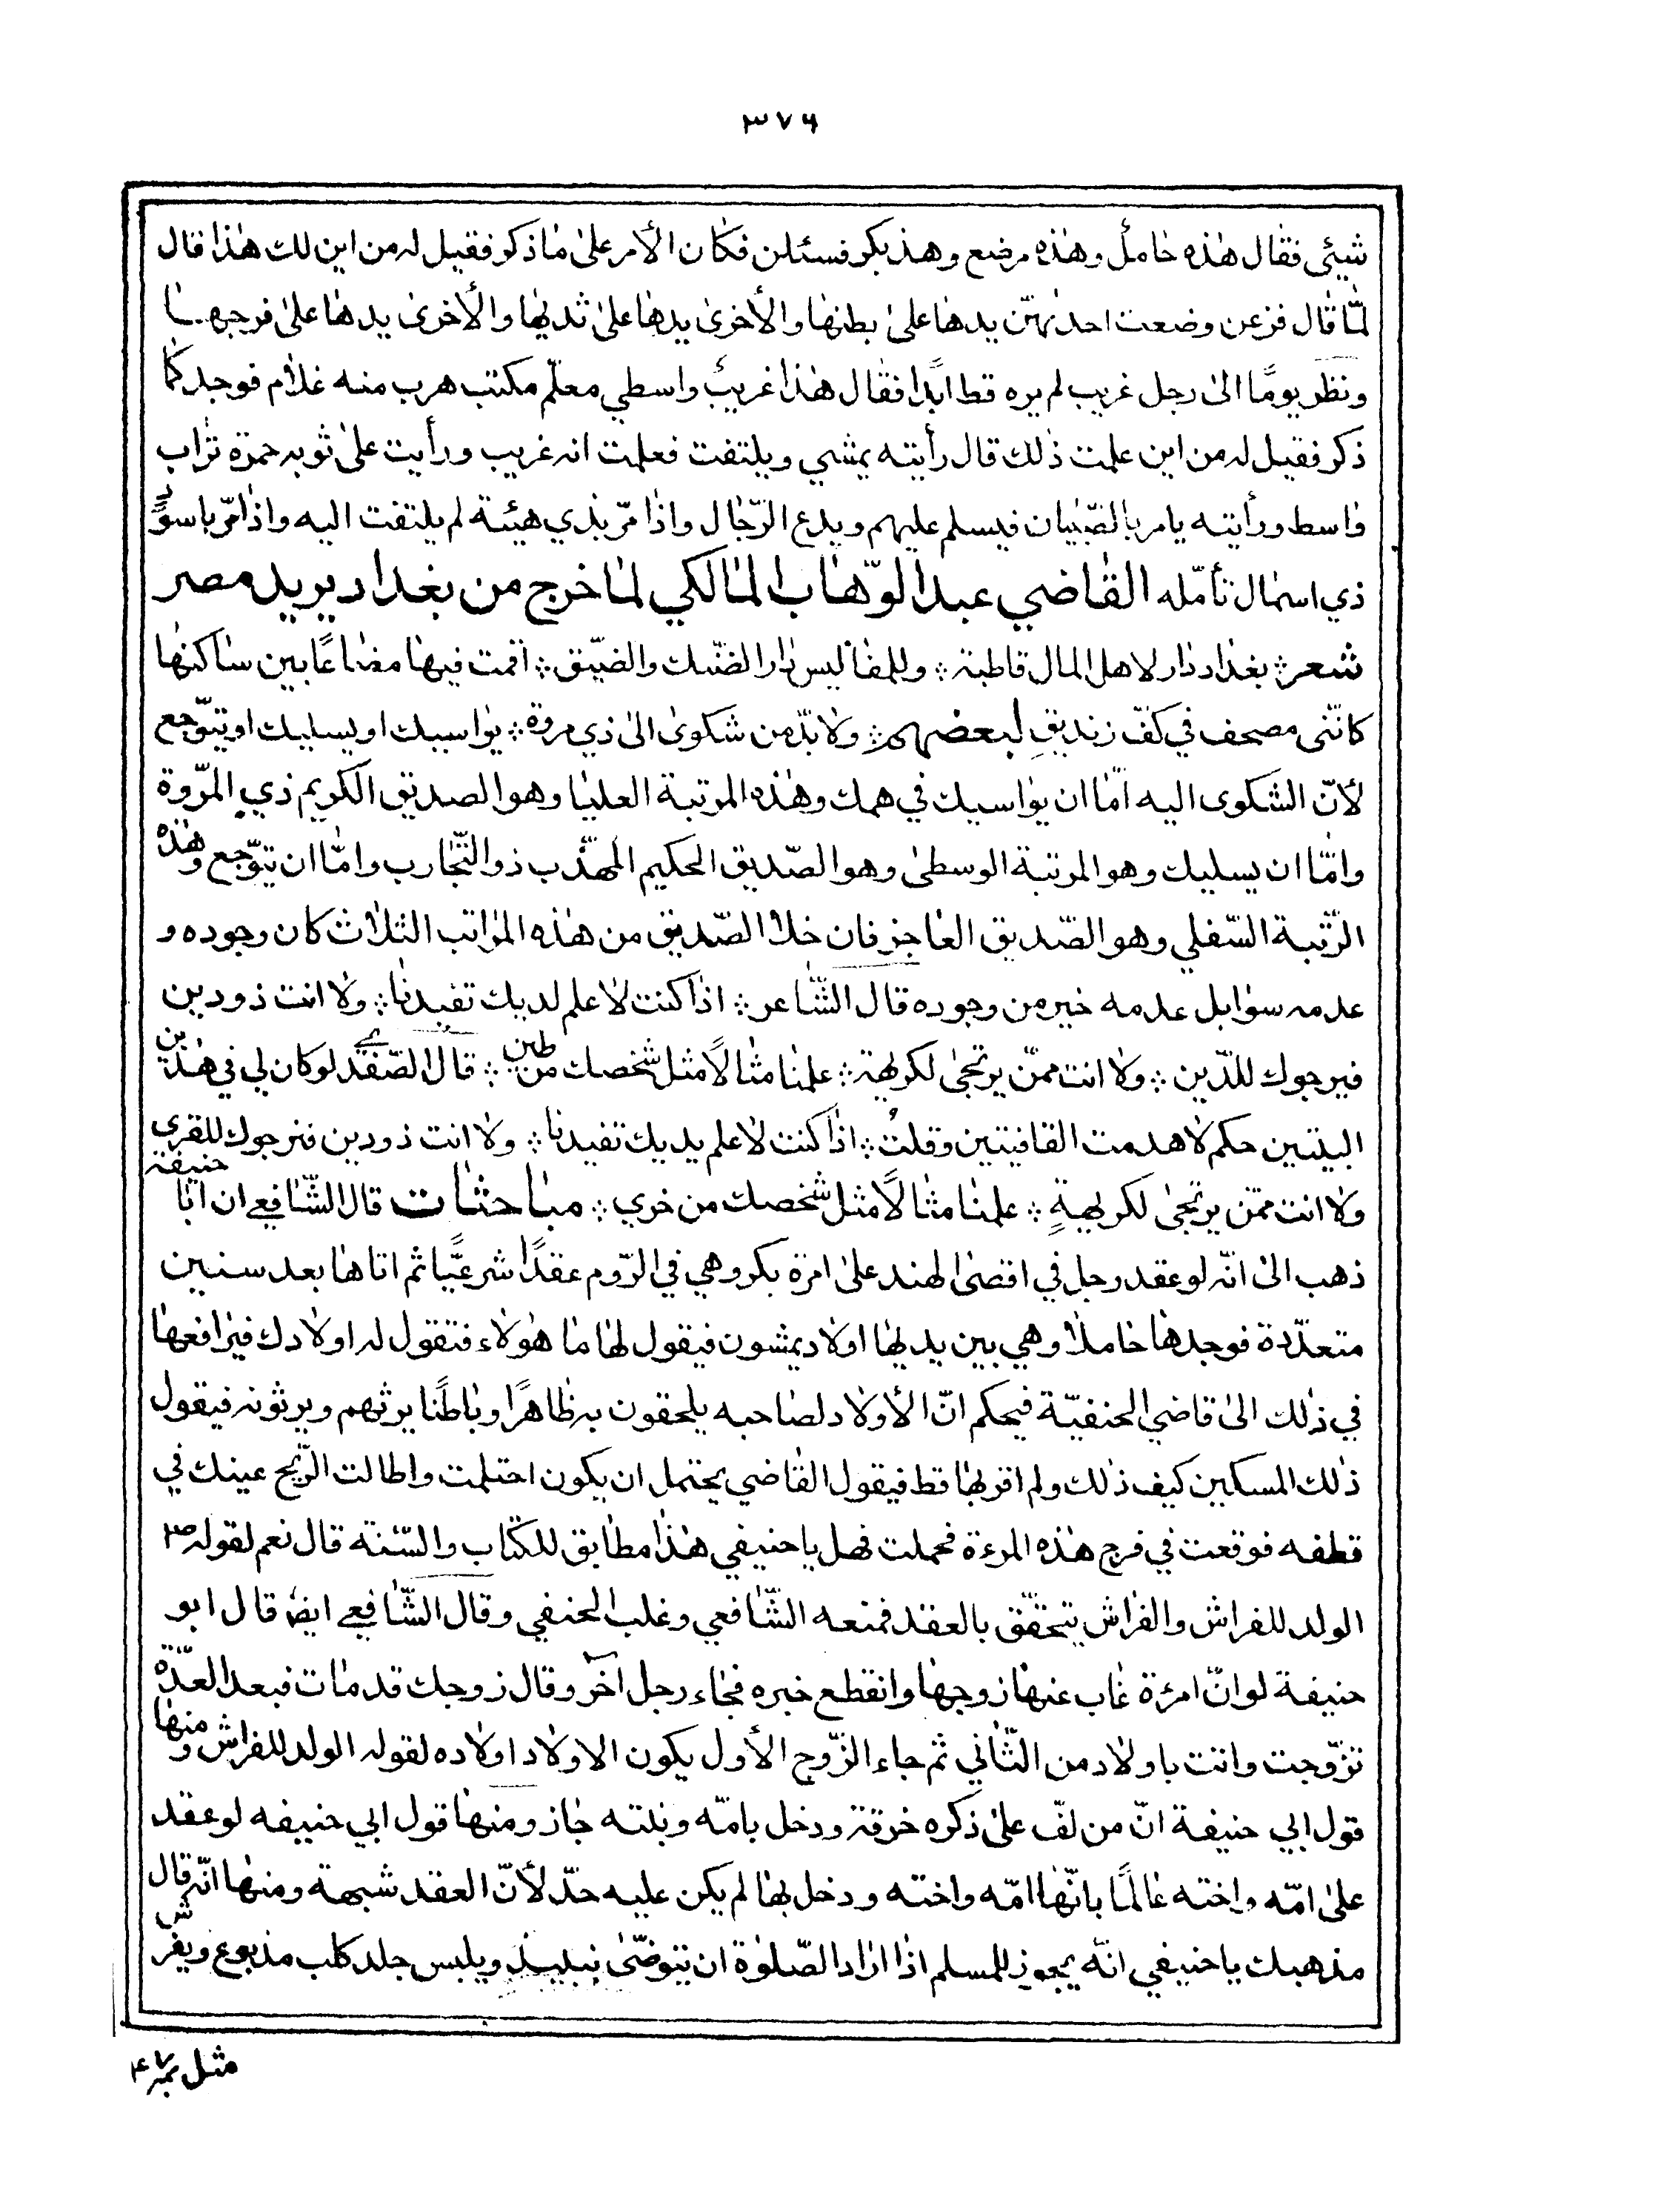 ٣٧٦
شيئي فقال هذه حامل وهذه مرضع وهذ بكر فسئلن فكان الأمر على ما ذكر فقيل له من اين لك هذا قال
لمّا قال فزعن وضعت احديهنّ يدها على بطنها والأخرى يدها على ثديها والأخرى يدها على فرجها
ونظر يومًا الى رجل غريب لم يره قط ابدًا فقال هذا غريب واسطي معلّم مكتب هرب منه غلام فوجد كما
ذكر فقيل له من اين علمت ذلك قال رأيته يمشي ويلتفت فعلمت انه غريب ورأيت على ثوبه حمرة تراب
واسط ورأيته يامر بالصّبيان فيسلم عليهم ويدع الرّجال واذا مرّ بذي هيئة لم يلتفت اليه واذا مرّ باسود
ذي اسمال تأمّله القاضي عبد الوّهاب المالكي لما خرج من بغداد يريد مصر
شعر ∴ بغداد دار لاهل المال قاطبة ∴ وللمفاليس دار الضنّك والضيّق ∴ اقمت فيها مضاعًا بين ساكنها
كانّني مصحف في كفّ زنديق لبعضهم ∴ ولا بدّ من شكوى الى ذي مروة ∴ يواسيك او يسليك او يتوّجع
لأنّ الشكوى اليه امّا ان يواسيك في همك وهذه المرتبة العليا وهو الصديق الكريم ذي المرّوة
وامّا ان يسليك وهو المرتبة الوسطى وهو الصّديق الحكيم المهذّب ذو التّجارب وامّا ان يتوّجع وهذه
الرّتبة السّفلي وهو الصّديق العاجز فان خلا الصّديق من هذه المراتب الثلاث كان وجوده و
عدمه سوا بل عدمه خير من وجوده قال الشّاعر ∴ اذا كنت لا علم لديك تفيدنا ∴ ولا انت ذو دين
فيرجوك للدّين ∴ ولا انت ممّن يرتجى لكريهة ∴ علمنا مثالًا مثل شخصك من طين ∴ قال الصّفدي لو كان لي في هذين
البيتين حكم لاهدمت القافيتين وقلت ∴ اذا كنت لا علم يديك تفيدنا ∴ ولا انت ذو دين فنرجوك للقرى
ولا انت ممّن يرتجى لكريهةٍ ∴ علمنا مثالًا مثل شخصك من خري ∴ مباحثات قال الشّافعي ان ابا حنيفة
ذهب الى انّه لو عقد رجل في اقصى الهند على امرة بكر وهي في الرّوم عقدًا شرعيًّا ثم اتاها بعد سنين
متعدّدة فوجدها حاملا وهي بين يديها اولاد يمشون فيقول لها ما هؤلاء فتقول له اولادك فيرافعها
في ذلك الى قاضي الحنفيّة فيحكم انّ الأولاد لصاحبه يلحقون به ظاهرًا وباطنًا يرثهم ويرثونه فيقول
ذلك المسكين كيف ذلك ولم اقربها قط فيقول القاضي يحتمل ان يكون احتلمت واطالت الرّيح عينك في
قطفه فوقعت في فرج هذه المرءة فحملت فهل يا حنيفي هذا مطابق للكتاب والسّنة قال نعم لقوله ص
الولد للفراش والفراش يتحقّق بالعقد فمنعه الشّافعي وغلب الحنفي وقال الشّافعي ايضا قال ابو
حنيفة لو انّ امرءة غاب عنها زوجها وانقطع خبره فجاء رجل آخر وقال زوجك قد مات فبعد العدّة
تزوّجت واتت باولاد من الثّاني ثم جاء الزّوج الأول يكون الاولاد اولاده لقوله الولد للفراش ومنها
قول ابي حنيفة انّ من لفّ على ذكره خرقة ودخل بامّه وبنته جاز ومنها قول ابي حنيفه لو عقد
على امّه واخته عالمًا بانّها امّه واخته ودخل بها لم يكن عليه حدّ لأنّ العقد شبهة ومنها انّه قال
مذهبك يا حنيفي انّه يجوز للمسلم اذا اراد الصّلوة ان يتوضّى بنبيذ ويلبس جلد كلب مذبوع ويفرش
مثل نمبر ٤٧